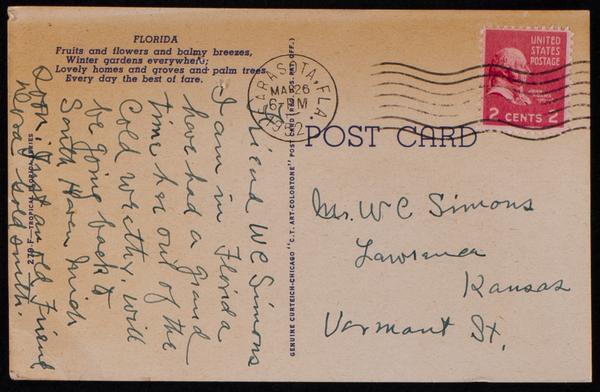 FLORIDA
Fruits and flowers and balmy breezes,
Winter gardens everywhere;
Lovely homes and groves and palm trees
Every day the best of fare.
SARASOTA, FLA.
MAR 26
6- PM
52
UNITED
STATES
POSTAGE
JOHN ADAMS
2 CENTS 2
POST CARD
GENUINE CURTEICH-CHICAGO "C.T. ART-COLORTONE" POST CARD (REG. U.S. PAT. OFF.)
Friend W C Simons
I am in Florida
have had a grand
time her out of the
Cold wrethy, will
be going back to
South Haven Mich
soon. Just an old Friend
Goldsmith.
Mr. W C Simons
Lawrence
Kansas
Vermont St,